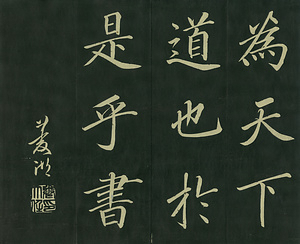 為天下
道也於
是乎書